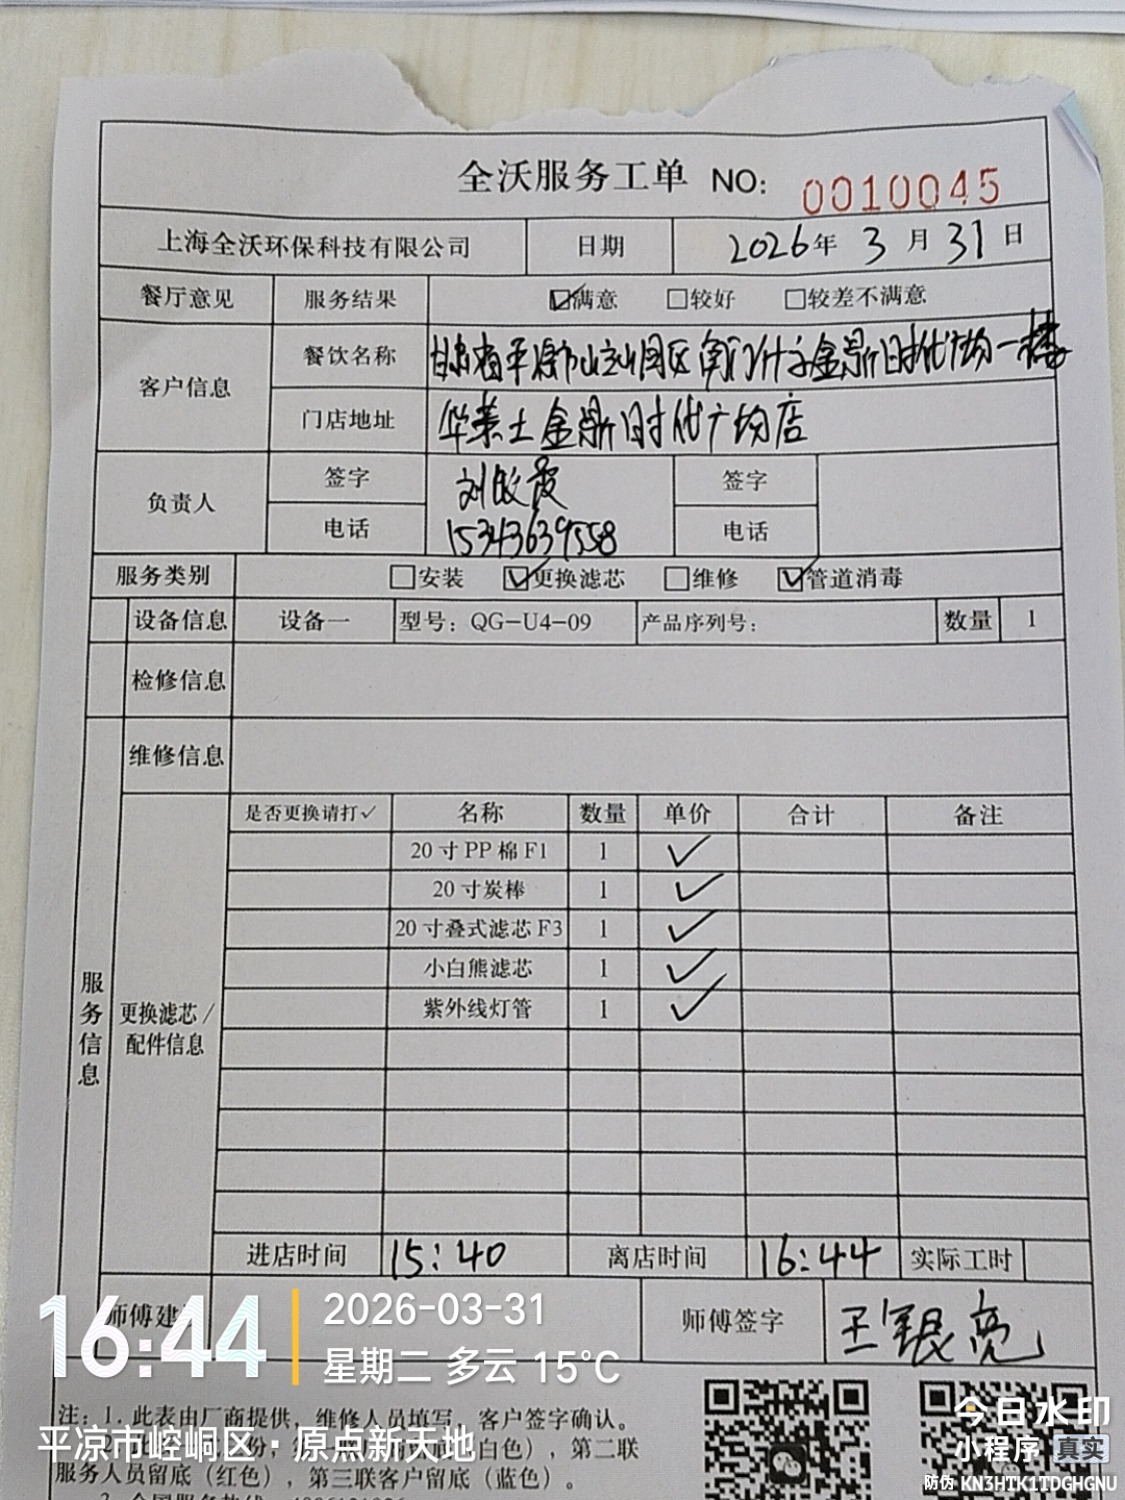 全沃服务工单 NO: 0010045
上海全沃环保科技有限公司 日期 2026年 3月 31日
餐厅意见 服务结果 ☑满意 □较好 □较差不满意
客户信息 餐饮名称 甘肃省平凉市崆峒区南门什字金鼎时代广场一楼
门店地址 华莱士金鼎时代广场店
负责人 签字 刘 霞 签字
电话 15343639558 电话
服务类别 □安装 ☑更换滤芯 □维修 ☑管道消毒
设备信息 设备一 型号：QG-U4-09 产品序列号： 数量 1
检修信息
维修信息
服务信息
更换滤芯/配件信息
是否更换请打✓ 名称 数量 单价 合计 备注
20寸PP棉F1 1 ✓
20寸炭棒 1 ✓
20寸叠式滤芯F3 1 ✓
小白熊滤芯 1 ✓
紫外线灯管 1 ✓
进店时间 15:40 离店时间 16:44 实际工时
师傅建 师傅签字 王银亮
16:44 2026-03-31
星期二 多云 15°C
注：1. 此表由厂商提供，维修人员填写，客户签字确认。
平凉市崆峒区·原点新天地
白色），第二联
服务人员留底（红色），第三联客户留底（蓝色）。
今日水印
小程序 真实
防伪 KN3HTK1TDGHGNU